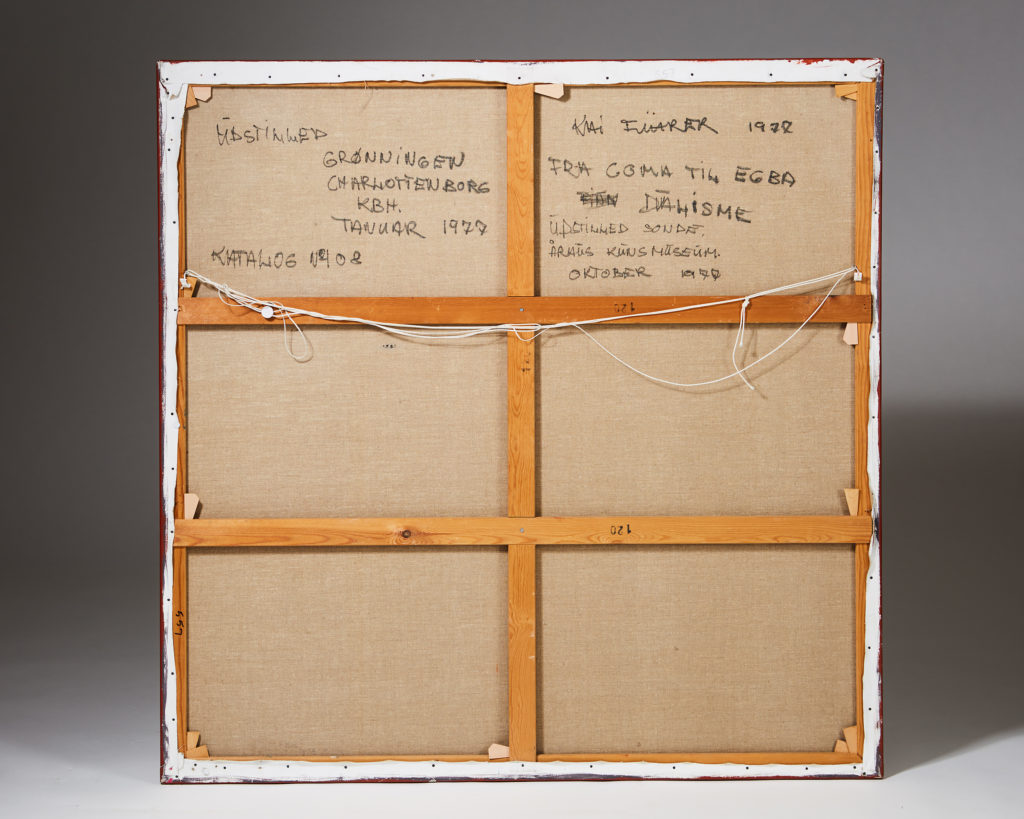 ÜDSTILLED
GRØNNINGEN
CHARLOTTENBORG
KBH.
JANUAR 1977
KATALOG Nº 108
KAI FÜHRER 1977
FRA COMA TIL EGBA
DÜALISME
ÜDSTILLED SONDE.
ÅRHÜS KÜNSMÜSEÜM.
OKTOBER 1977
120
120